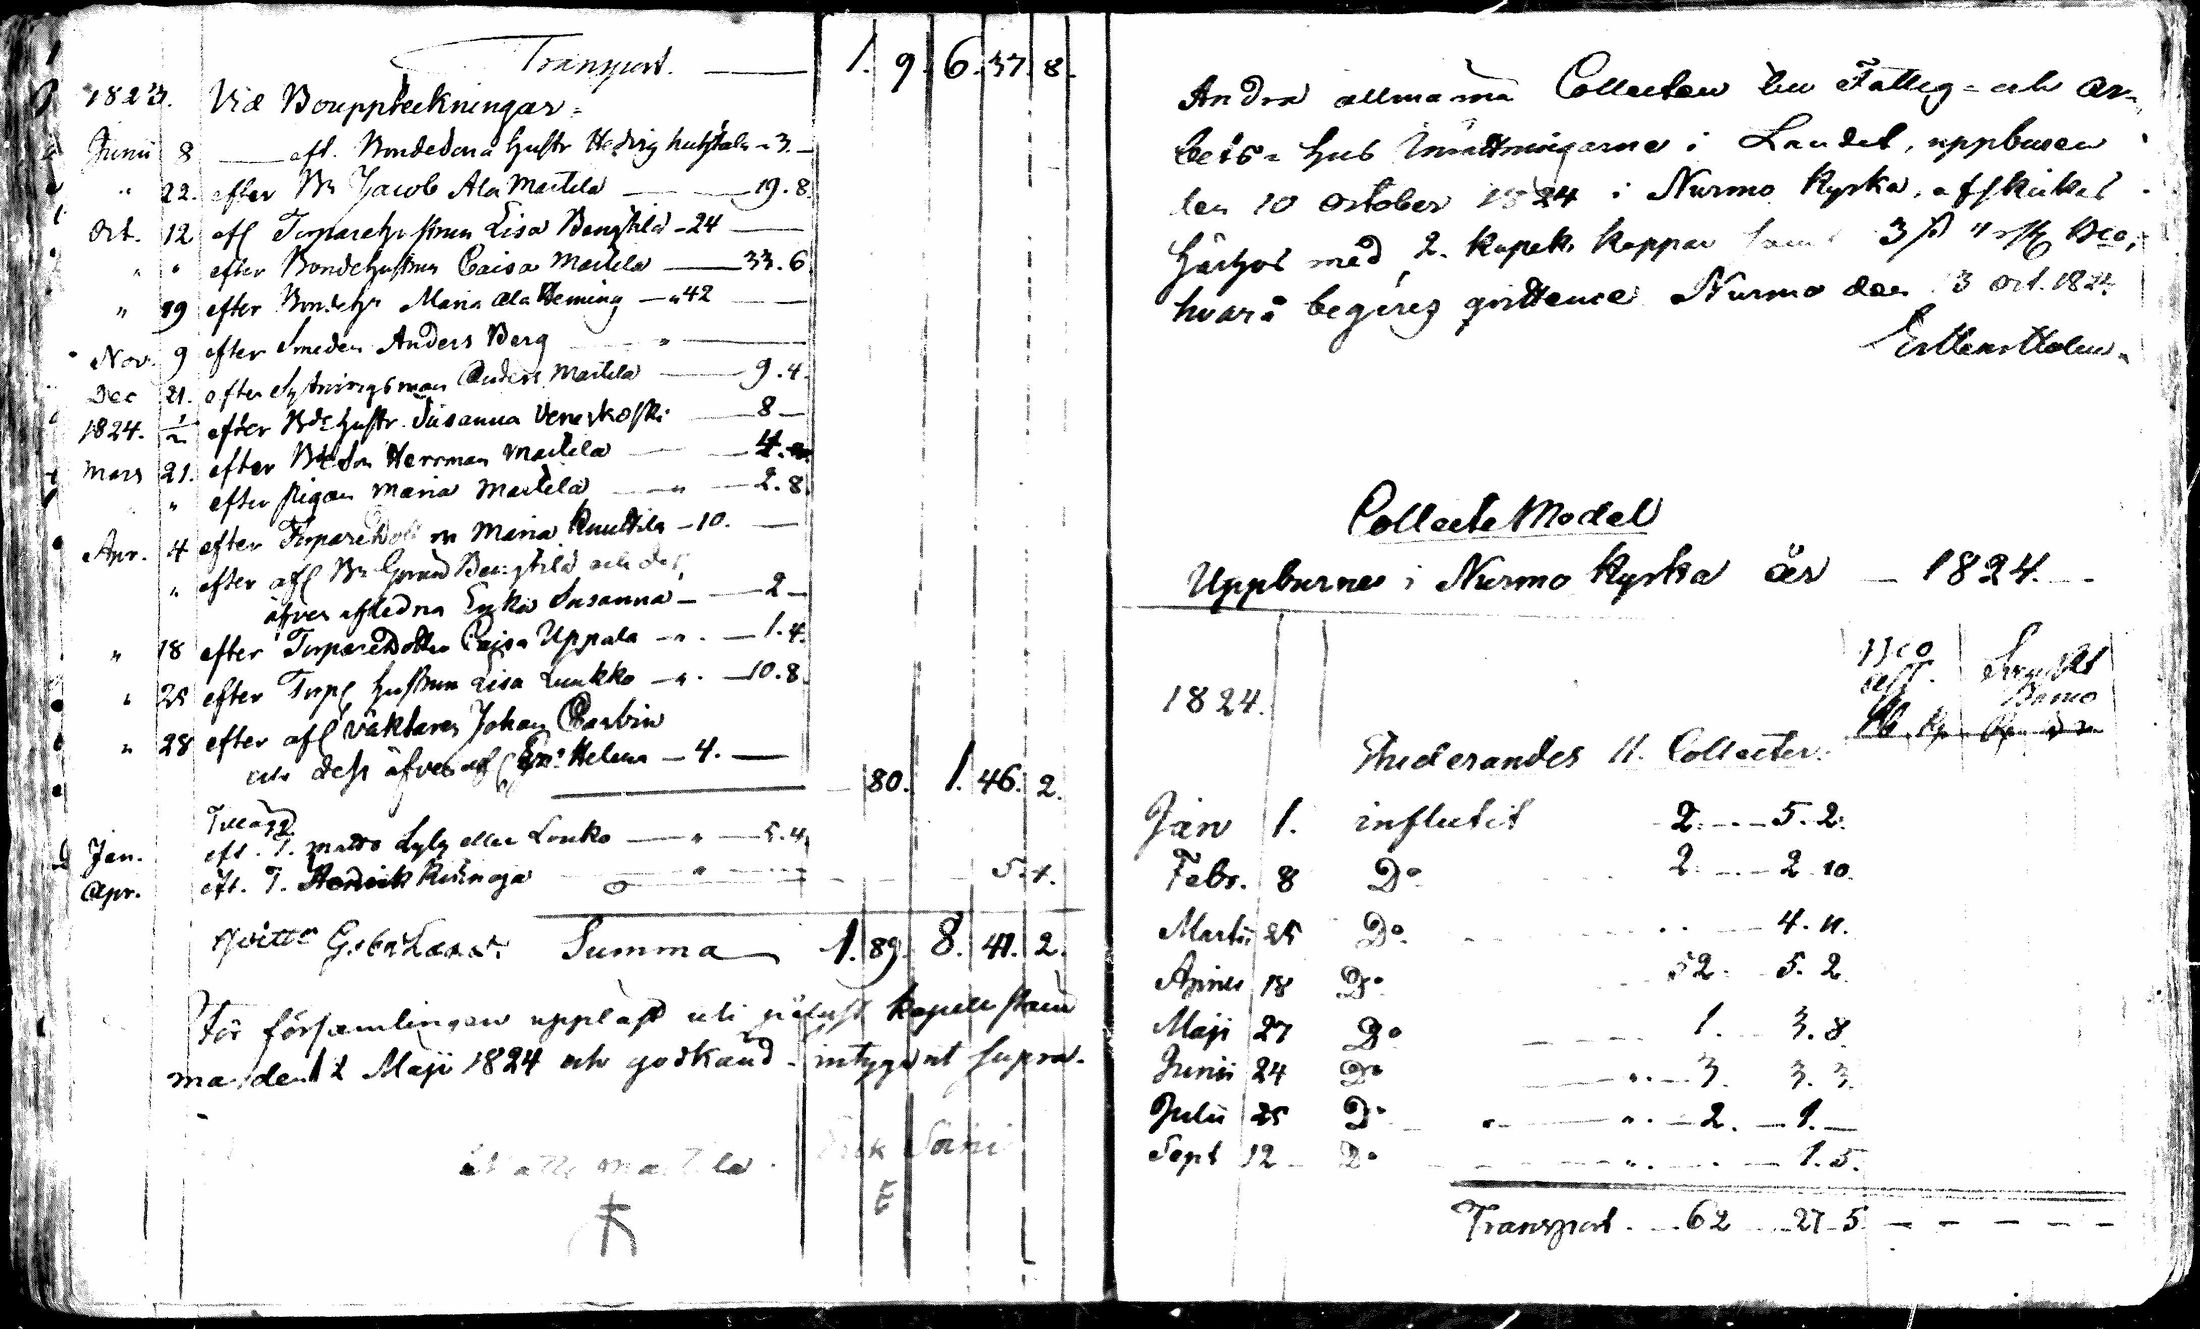 Transport. — 1. 9. 6. 37. 8.
1823. Vid Bouppteckningar
Junii 8 — eft. Bondedena Hustr Hedvig — 3. —
" 22. efter Bn Jacob Ala Martela — 19. 8.
Oct. 12 efl Torparehustrun Lisa Bengtila — 24 —
" " efter Bondehustrun Caisa Martela — 33. 6
" 19 efter Bondehr Maria Ala Heming — " 42 —
Nov. 9 efter Smeden Anders Berg — " —
Dec 21. efter Sytningsman Anders Martela — 9. 4.
1824. 1/2 efter Bde hustr. Susanna Veneskoski — 8 —
Mars 21. efter Bde Son Herrman Martela — 4.
" efter pigan Maria Martela — " — 2. 8.
Apr. 4 efter Torpare Maria Knuttila — 10. —
" efter afl Bn Bengtila och des
äfven afledna Enka Susanna — 2 —
" 18 efter TorpareDottren Caisa Uppala — " — 1. 4.
" 25 efter Torp hustrun Lisa Luukko — " — 10. 8.
" 28 efter afl Väktaren Johan Carbin
och dess äfven afl Enk Helena — 4. —
— 80. 1. 46. 2.
Tillägg
Jan. eft. T. Matts Lyly eller Louko — " — 5. 4.
Apr. eft. T. Henrik — " — 5. 4.
Summa 1. 89. 8. 41. 2.
För församlingen uppläst uti kapell stäm
ma den 2 Maji 1824 och godkänd - intygar ut supra.
Matts Martela. Erik Soini
E
Andra allmänna Collecten till Fattig- och Ar-
bets- hus Inrättningarne i Landet, uppburen
den 10 October 1824 i Nurmo Kyrka, afskickas
härhos med 2. kopek koppar samt 3 Bco,
hvarå begäres qvittence Nurmo den 13 Oct. 1824.
Collecte Medel
Uppburne i Nurmo Kyrka år — 1824. —
1824.
Bco
Studerandes 11. Collecter.
Jan 1. influtit 2. — 5. 2.
Febr. 8 Do 2. — 2 10.
Martii 25 Do — 4. 11.
Aprill 18 Do 52. 5. 2
Maji 27 Do 1. 3. 8.
Junii 24 Do " — 3. 3. 3.
Julii 25 Do " — " — 2. — 1. —
Sept 12 Do — " — 1. 5.
Transport. — 62 — 27 — 5 — — — — —